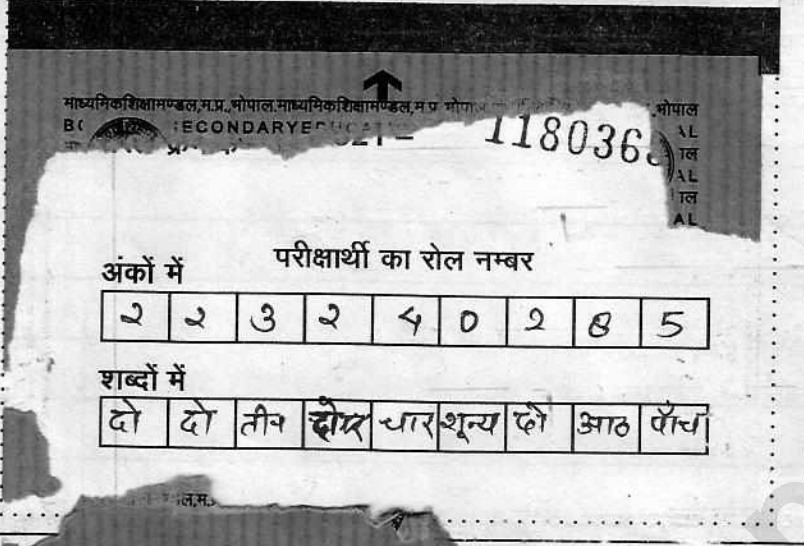 माध्यमिकशिक्षामण्डल,म.प्र.,भोपाल.माध्यमिकशिक्षामण्डल,म.प्र भोपाल
ECONDARYE
118036
परीक्षार्थी का रोल नम्बर
अंकों में
२ २ 3 २ 4 0 2 8 5
शब्दों में
दो दो तीन दो चार शून्य दो आठ पाँच